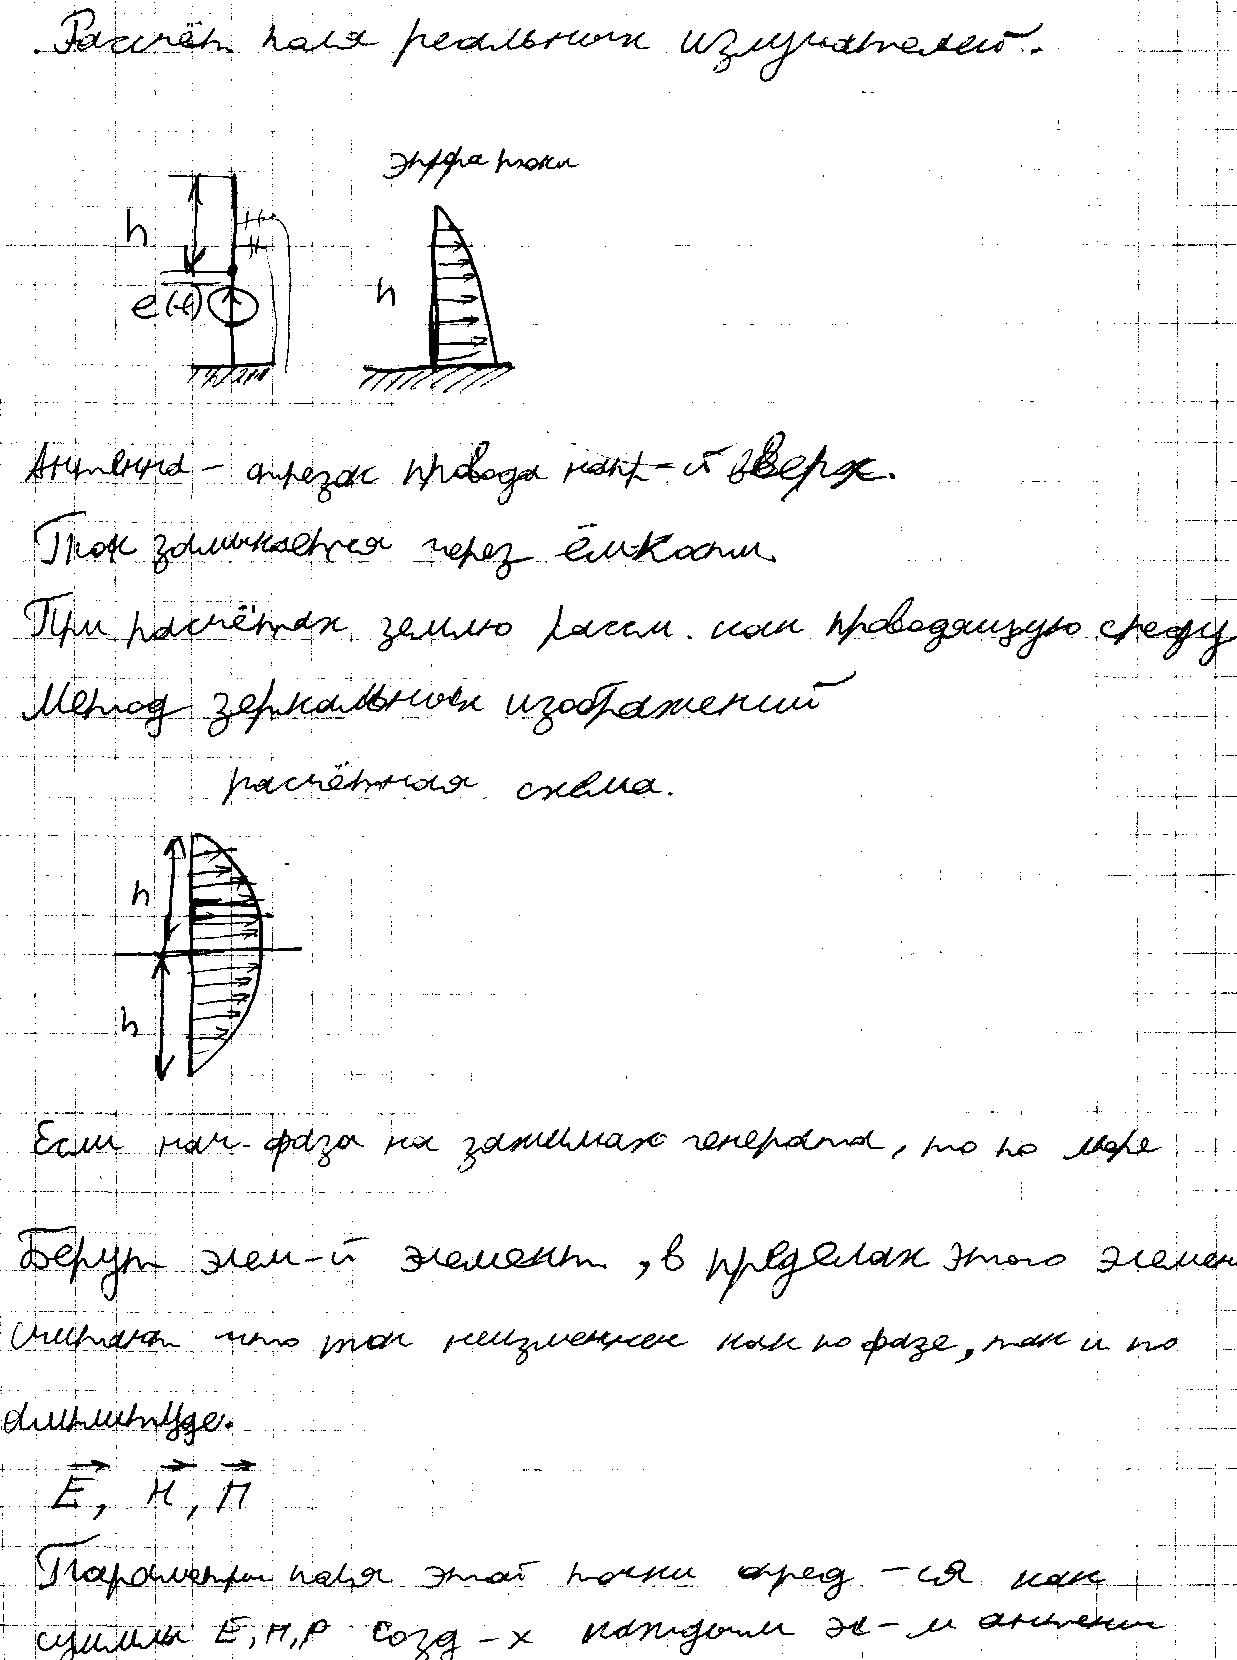 Рассчёт поля реальных излучателей.
эпюра токи
h
e(t)
h
Антенна - отрезок провода напр-й вверх.
Ток замыкается через ёмкости.
При расчётах землю рассм. как проводящую среду
Метод зеркальных изображений
расчётная схема.
h
h
Если нач. фаза на зажимах генерата, то по мере
Берут элем-й элемент, в пределах этого элемен
считают что ток неизменен как по фазе, так и по
амплитуде.
E, H, П
Параметры поля этой точки опред-ся как
суммы E, H, P созд-х каждым эл-м антенны